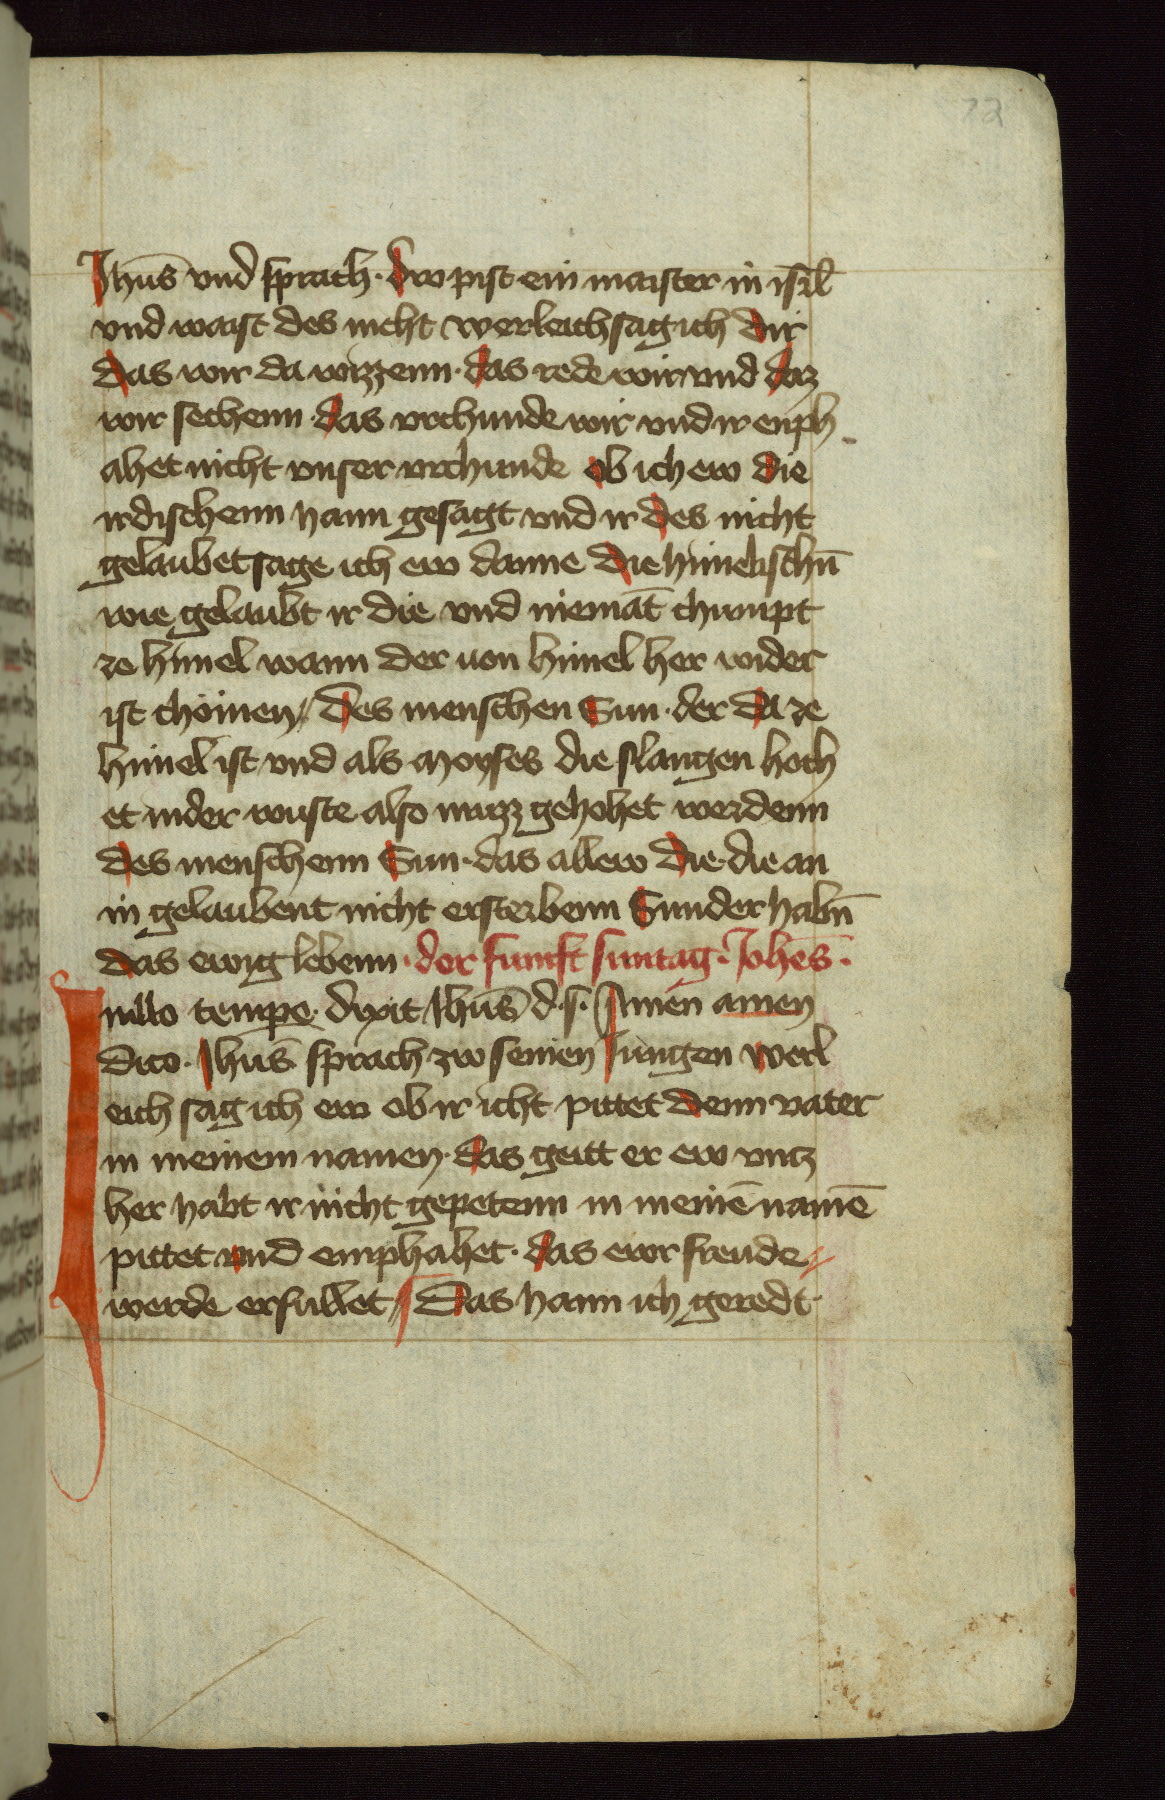 72
Jhus̄ vnd sprach · Dw pist ein maister in isr̄l
vnd waist des nicht werleich sag ich dir
das wir da wizzenn · das rede wir vnd daz
wir sechenn · das vrchunde wir vnd ir enph
ahet nicht vnser vrchunde ob ich ew die
irdischenn hann gesagt vnd ir des nicht
gelaubet sage ich ew danne die himelischn̄
wie gelaubt ir die vnd niemāt chumpt
ze himel wann der uon himel her wider
ist chömen // Des menschen Sun · der da ze
himel ist vnd als moyses die slangen hoch
et in der wuste also muzz gehohet werdenn
des menschenn Sun · das allew die · die an
in gelaubent nicht ersterbenn Sunder habn̄
das ewig lebenn · der fumft suntag · Johēs ·
Jn illo tempe · dixit Jhus̄ d · s · Amen amen
dico · Jhus̄ sprach zw seinen Jungen werl
eich sag ich ew ob ir icht pittet denn vater
in meinem namen · das geitt er ew vntz
her habt ir nicht gepetenn in meinē namē
pittet vnd emphahet · das ewr freude
werde erfullet // Das hann ich geredt ·